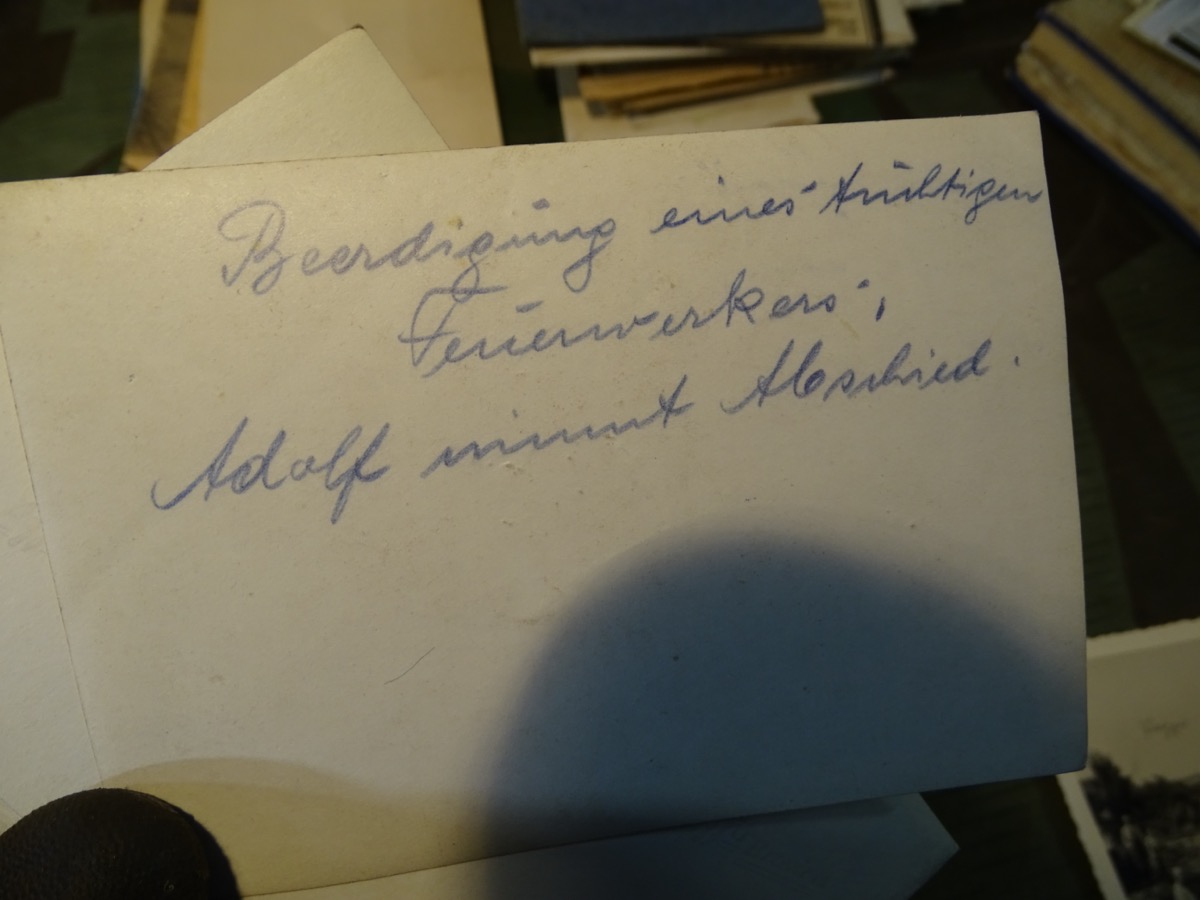 Beerdigung eines tüchtigen
Feuerwerkers,
Adolf nimmt Abschied.